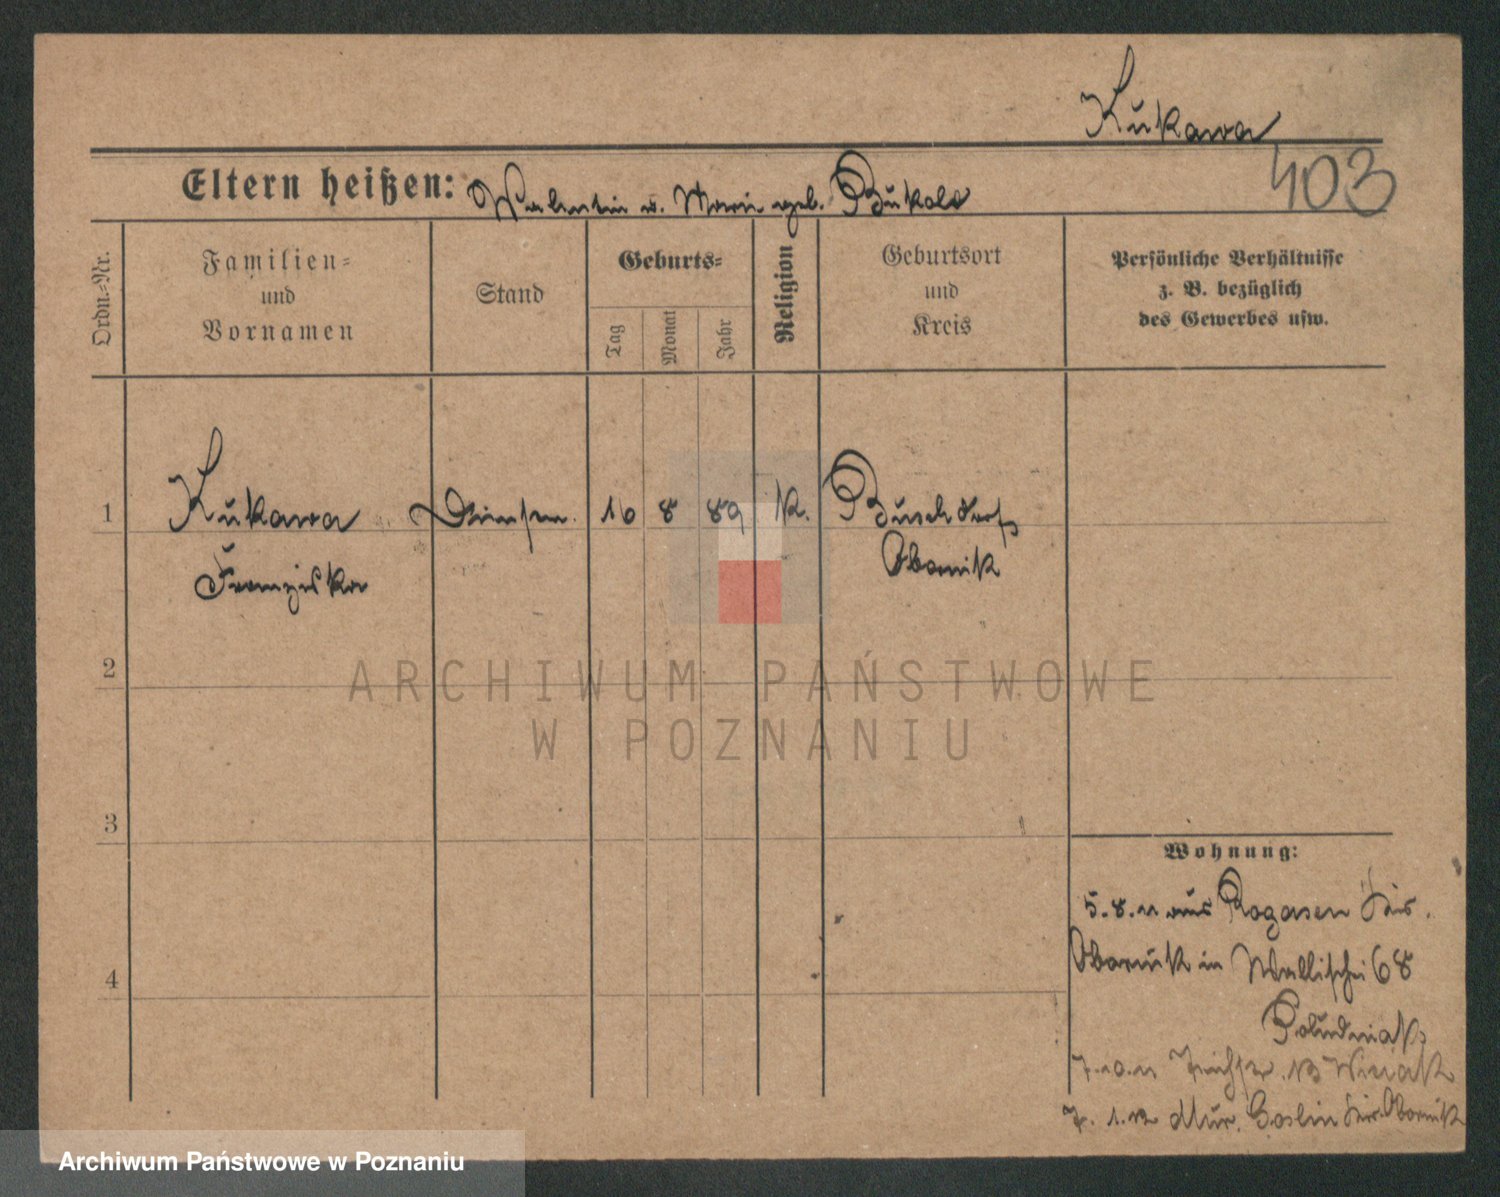 Kukawa
403
Eltern heißen: Valentin u. Marie geb. Bukola
Ordn.-Nr.
Familien-
und
Vornamen
Stand
Geburts-
Tag
Monat
Jahr
Religion
Geburtsort
und
Kreis
Persönliche Verhältnisse
z. B. bezüglich
des Gewerbes usw.
1 Kukawa 10 8 89 K. Buschdorf
Franziska Obornik
2
3
4
Wohnung:
5.8.11 aus Rogasen Krs.
Obornik in Wallischei 68
Poludniak
7.10.11 13 Wiziak
7. 1.12 Mur. Goslin Krs. Obornik
ARCHIWUM PAŃSTWOWE
W POZNANIU
Archiwum Państwowe w Poznaniu